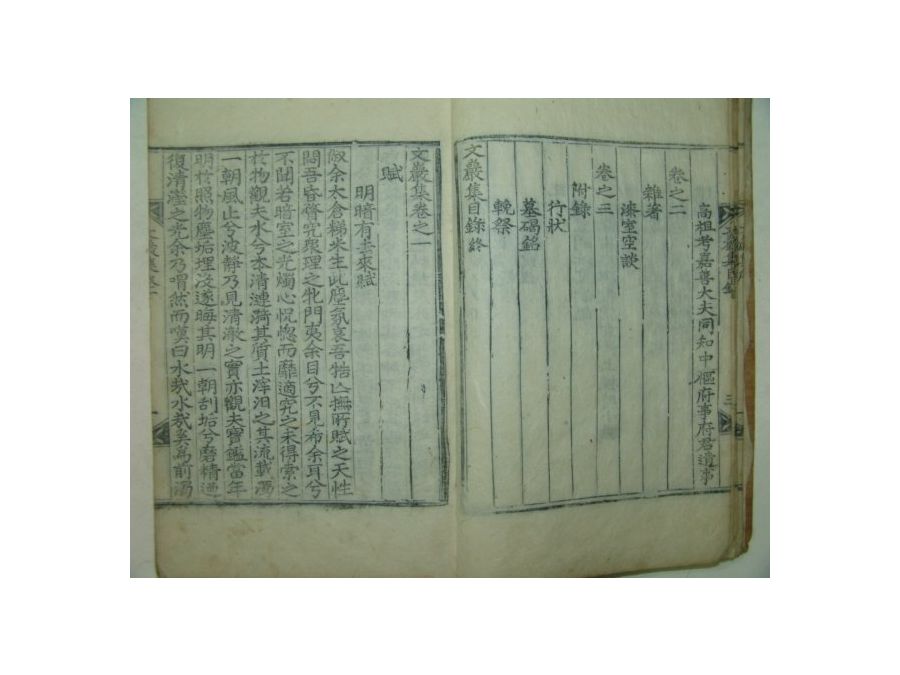 高祖考嘉善大夫同知中樞府事府君遺事
卷之二
雜著
漆室空談
卷之三
附錄
行狀
墓碣銘
輓祭
文巖集目錄終
三
文巖集卷之一
賦
明暗有去來賦
余太倉梯米生此塵氛哀吾牿亡撫所賦之天性
悶吾昏瞀究衆理之牝門夷余目兮不見希余耳兮
不聞若暗室之光燭心怳惚而靡適究之未得索之
於物觀夫水兮本清漣漪其質土滓汨之其流載濁
一朝風止兮波靜乃見清澈之實亦觀夫寶鑑當年
明於照物塵垢埋沒遂晦其明一朝刮垢兮磨精
復清瀅之光余乃喟然而嘆曰水哉水哉奚爲前濁